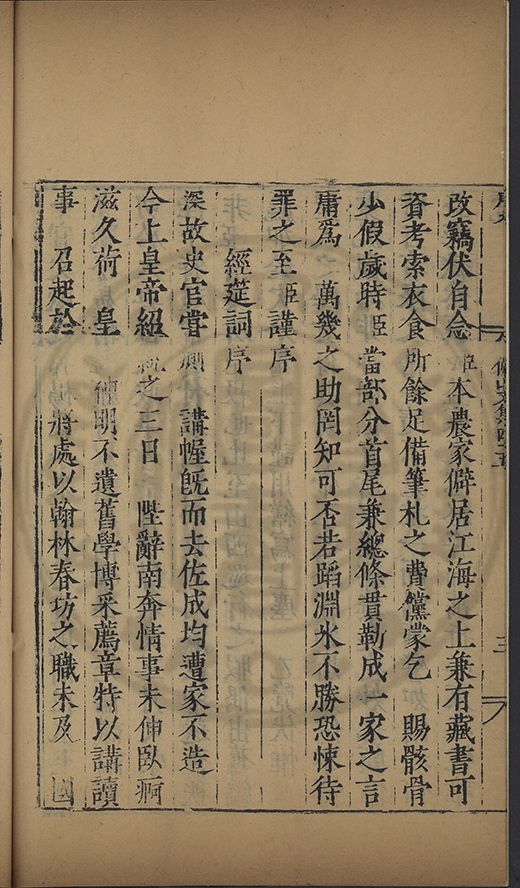 改竊伏自念臣本農家僻居江海之上兼有藏書可
資考索衣食所餘足備筆札之費儻蒙乞　賜骸骨
少假歲時臣當部分首尾兼總條貫勒成一家之言
庸爲　萬幾之助罔知可否若蹈淵氷不勝恐悚待
罪之至臣謹序
經筵詞序
深故史官嘗廁　講幄旣而去佐成均遭家不造
今上皇帝紹　之三日　陛辭南奔情事未伸臥痾
滋久荷　皇　明不遺舊學博采薦章特以講讀
事　召起於　將處以翰林春坊之職未及　國